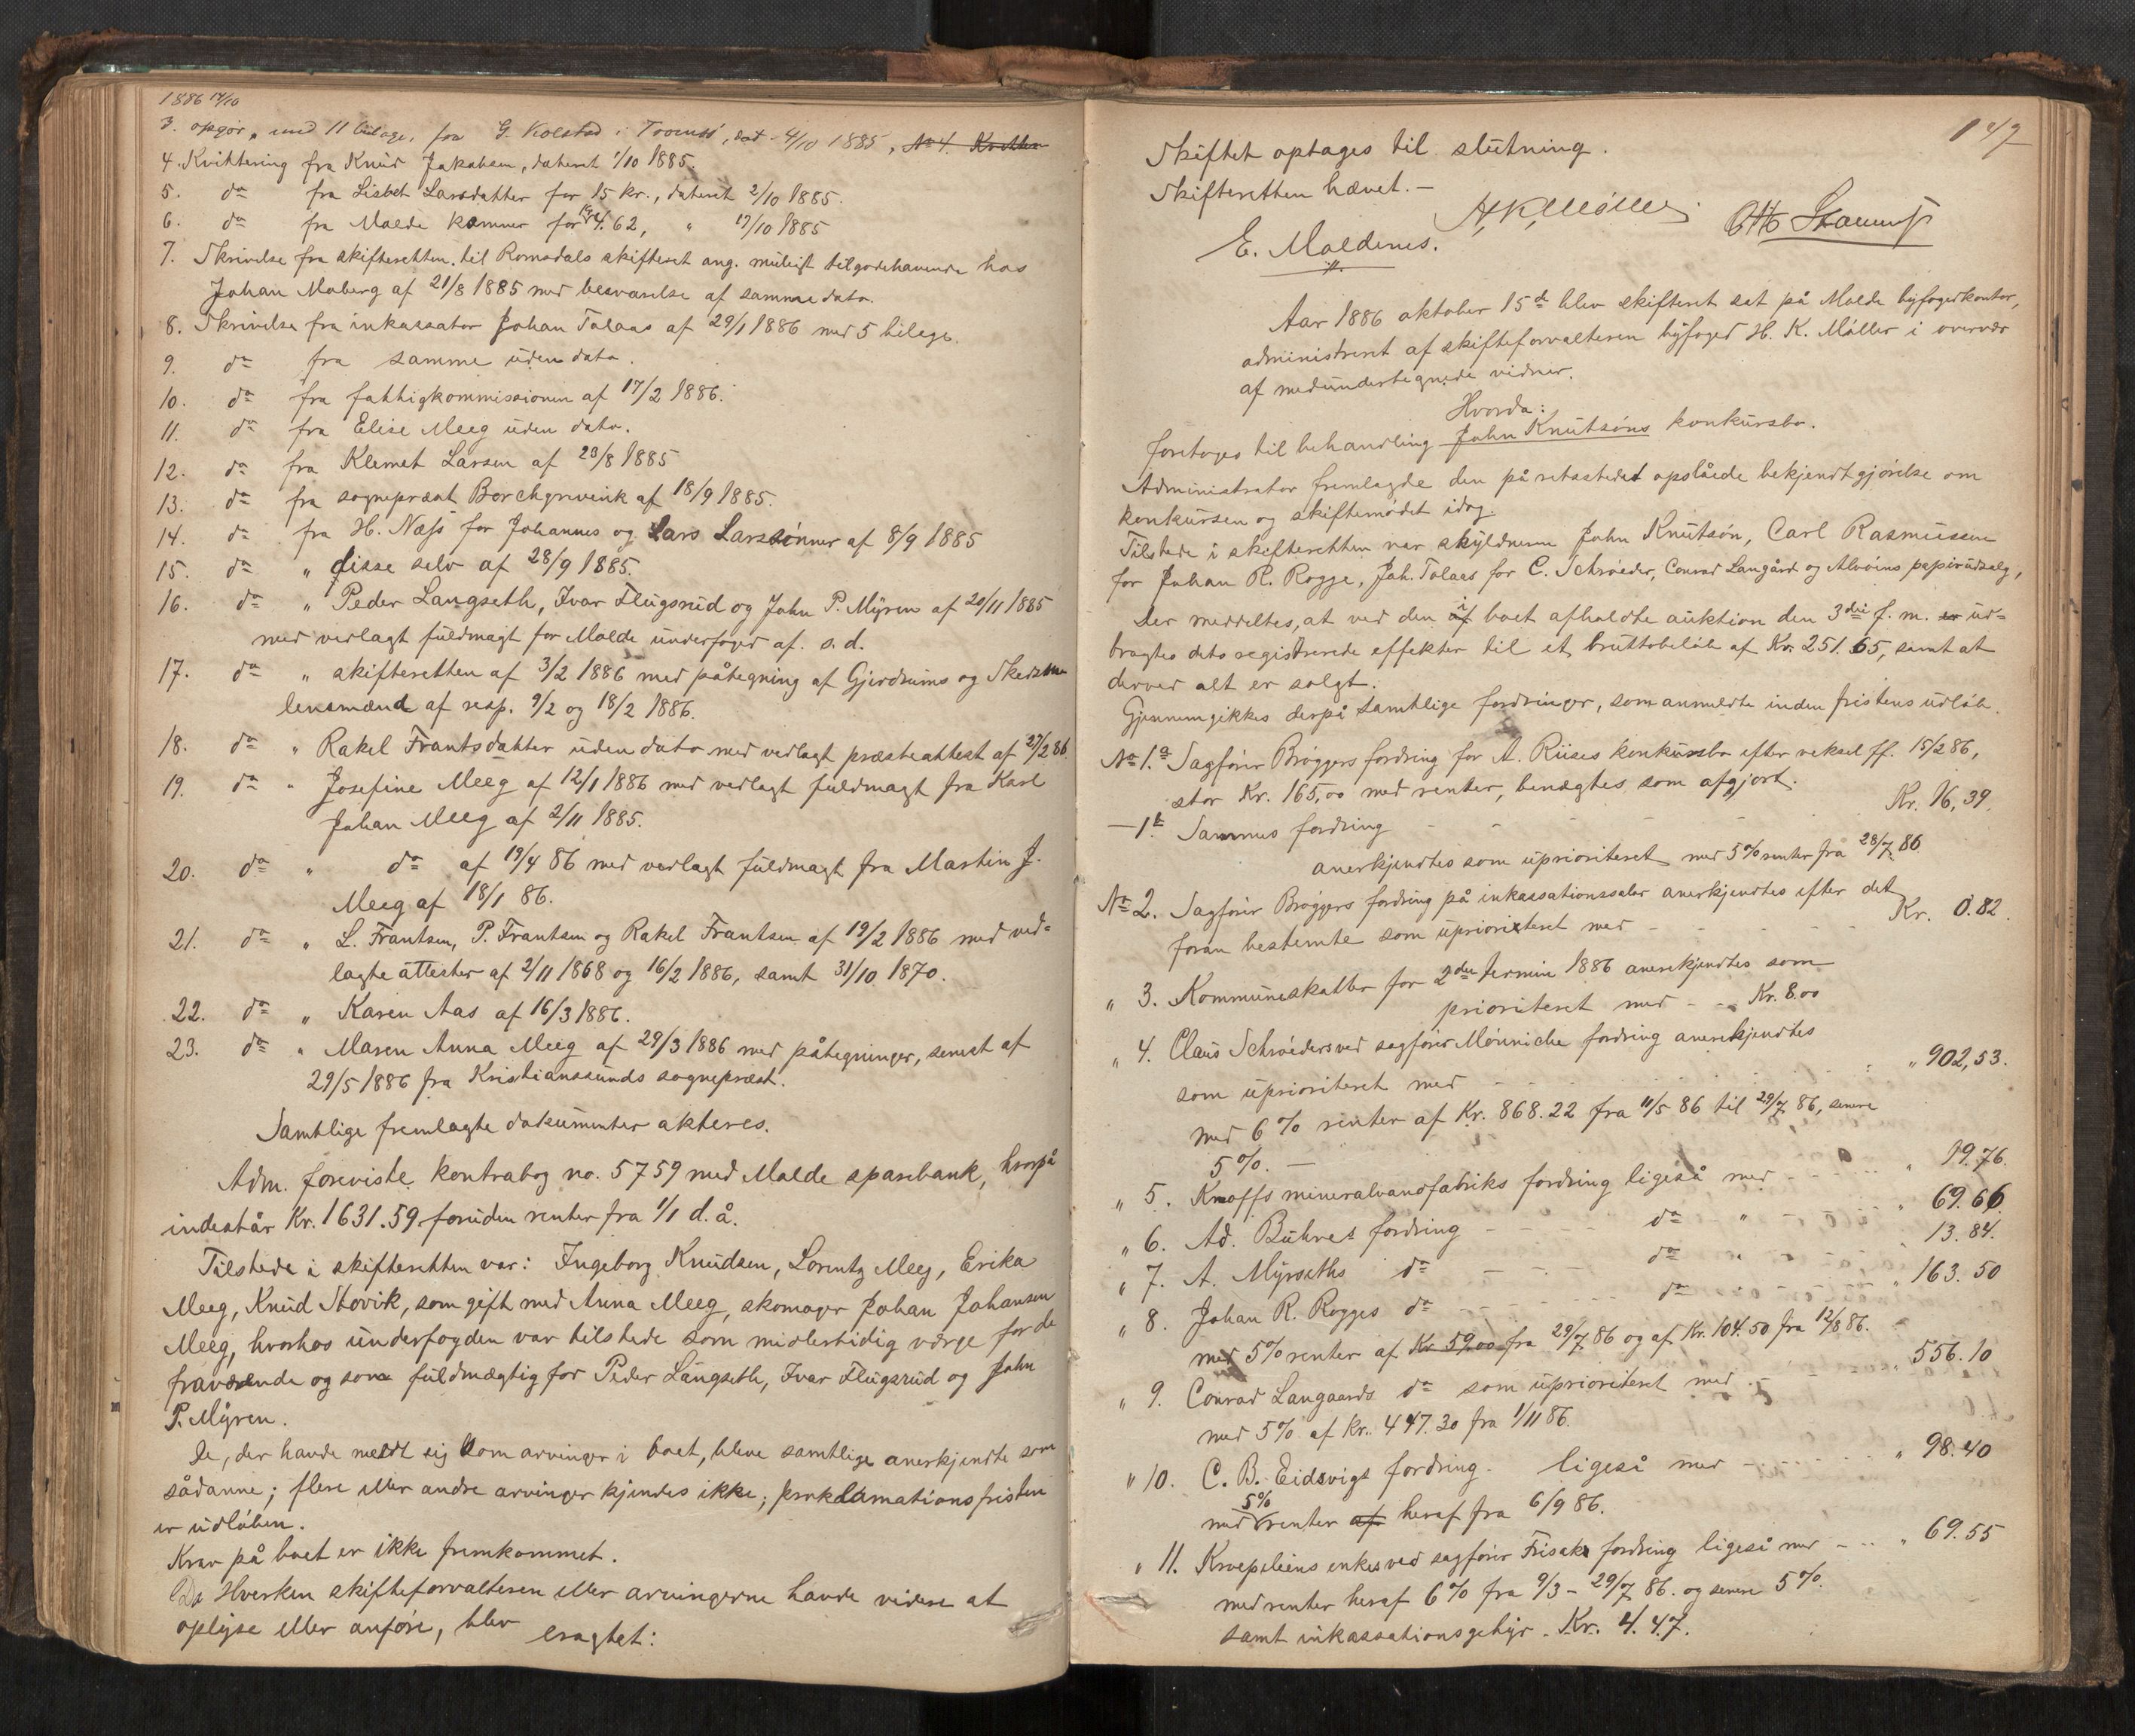 1886 14/10
3. opgör, med 11 bilage, fra G. Kolstad i Tromsö, dat. 4/10 1885, No 4. Kvitter
4. Kvittering fra Knud Jakobsen, dateret 1/10 1885.
5. do fra Lisbet Larsdatter for 15 kr., dateret 2/10 1885.
6. do fra Molde kemner for Kr. 4.62, " 17/10 1885
7. Skrivelse fra skifteretten til Romsdals skifteret ang. muligt tilgodehavende hos
Johan Moberg af 21/8 1885 med besvarelse af samme dato.
8. Skrivelse fra inkassator Johan Tolaas af 29/1 1886 med 5 bilage.
9. do fra samme uden dato.
10. do fra fattigkommissionen af 17/2 1886.
11. do fra Elise Meeg uden dato.
12. do fra Klemet Larsen af 23/8 1885
13. do fra sogneprest Borchgrevink af 18/9 1885.
14. do fra H. Næss for Johannes og Lars Larssönner af 8/9 1885
15. do " disse selv af 28/9 1885.
16. do " Peder Langseth, Ivar Flugsrud og John P. Myren af 20/11 1885
med vedlagt fuldmagt for Molde underfoged af s. d.
17. do " skifteretten af 3/2 1886 med påtegning af Gjerdrums og Skedsmo
lensmænd af resp. 9/2 og 18/2 1886.
18. do " Rakel Frantsdatter uden dato med vedlagt præsteattest af 27/2 86.
19. do " Josefine Meeg af 12/1 1886 med vedlagt fuldmagt fra Karl
Johan Meeg af 2/11 1885.
20. do " do af 19/4 86 med vedlagt fuldmagt fra Martin J.
Meeg af 18/1 86.
21. do " L. Frantsen, P. Frantsen og Rakel Frantsen af 19/2 1886 med ved=
lagte attester af 2/11 1868 og 16/2 1886, samt 31/10 1870.
22. do " Karen Aas af 16/3 1886.
23. do " Maren Anna Meeg af 29/3 1886 med påtegninger, senest af
29/5 1886 fra Kristianssunds sogneprest.
Samtlige fremlagte dokumenter akteres.
Adm. foreviste kontrabog no. 5759 med Molde sparebank, hvorpå
indestår Kr. 1631.59 foruden renter fra 1/1 d. å.
Tilstede i skifteretten var: Ingeborg Knudsen, Lorentz Meeg, Erika
Meeg, Knud Stovik, som gift med Anna Meeg, skomager Johan Johansen
Meeg, hvorhos underfogden var tilstede som midlertidig værge for de
fraværende og som fuldmægtig for Peder Langseth, Ivar Flugsrud og John
P. Myren.
De, der havde meldt sig som arvinger i boet, bleve samtlige anerkjendte som
sådanne; flere eller andre arvinger kjendes ikke; proklamationsfristen
er udlöben.
Krav på boet er ikke fremkommet.
Da Hverken skifteforvalteren eller arvingerne havde videre at
oplyse eller anföre, blev
eragtet:
Skiftet optages til slutning.
Skifteretten hævet. —
H. K. Möller
E. Moldenes.
Otto
Aar 1886 oktober 15de blev skifteret sat på Molde byfogedkontor,
administreret af skifteforvalteren byfoged H. K. Möller i overvær
af medundertegnede vidner.
Hvorda:
foretoges til behandling John Knutsöns konkursbo.
Administrator fremlagde den på retsstedet opslåede bekjendtgjörelse om
konkursen og skiftemödet idag.
Tilstede i skifteretten var skyldneren John Knutsön, Carl Rasmussen
for Johan R. Rogge, Joh. Tolaas for C. Schröeder, Conrad Langård og Alvöens papirudsalg,
Der meddeltes, at ved den af i boet afholdte auktion den 3die f. m. er ud=
bragtes dets registrerede effekter til et bruttobelöb af Kr. 251.65, samt at
derved alt er solgt.
Gjennemgikkes derpå samtlige fordringer, som anmeldte inden fristens udlöb.
No 1.a Sagförer Bröggers fordring for A. Riises konkursbo efter veksel ff. 15/2 86,
stor Kr. 165,00 med renter, benægtes som afgjort.
— 1.b Sammes fordring - - - - Kr. 16,39.
anerkjendtes som uprioriteret med 5% renter fra 28/7 86.
No 2. Sagförer Bröggers fordring på inkassationssalær anerkjendtes efter det
foran bestemte som uprioriteret med - - - - Kr. 0.82.
" 3. Kommuneskatter for 2den termin 1886 anerkjendtes som
prioriteret med - - Kr. 8.00
" 4. Claus Schröeders ved sagförer Mönniche fordring anerkjendtes
som uprioriteret med - - - - " 902,53.
med 6% renter af Kr. 868.22 fra 11/5 86 til 29/7 86, senere
5%. —
" 5. Knoffs mineralvandfabriks fordring ligeså med - - - " 19.76.
" 6. Ad. Bührets fordring - - - do " - - " 69.66.
" 7. A. Myrseths do - - - do " " 13.84.
" 8. Johan R. Rogges do - - - do " 163.50
med 5% renter af Kr. 59.00 fra 29/7 86 og af Kr. 104.50 fra 12/8 86.
" 9. Conrad Langaards do som uprioriteret med - - " 556.10
med 5% af Kr. 447.30 fra 1/11 86.
" 10. C. B. Eidsvigs fordring. ligeså med - - - - " 98.40
med 5% renter af heraf fra 6/9 86.
" 11. Kroepeliens enkes ved sagförer Frisaks fordring ligeså med - - - " 69.55
med renter heraf 6% fra 9/3 - 29/7 86. og senere 5%.
samt inkassationsgebyr. Kr. 4.47.